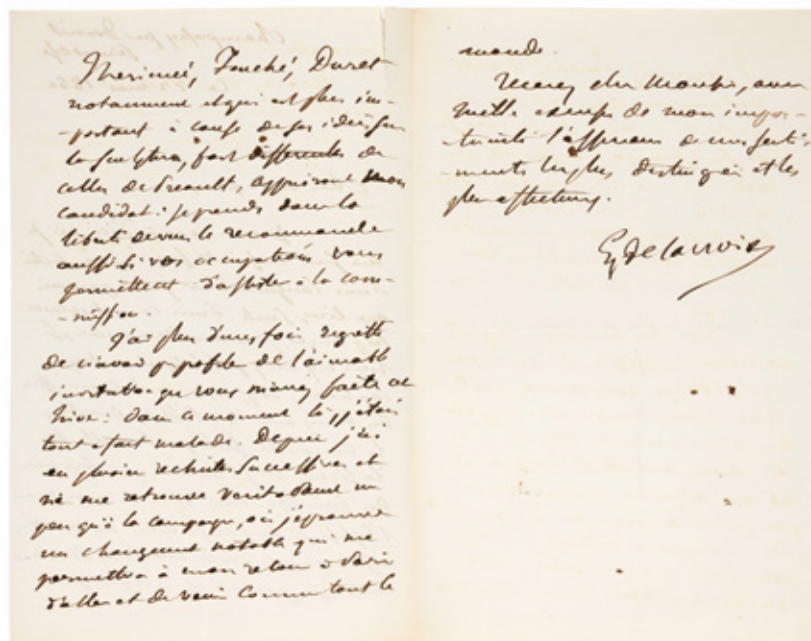 Merimée, Fouché, Duret
notamment et qui est plus im-
-portant à cause de ses idées sur
la sculpture, fort differentes de
celles de Préault, appuient mon
candidat: je prends donc la
liberté de vous le recommander
aussi si vos occupations vous
permettent d'assister à la com-
-mission.
J'ai plus d'une fois regretté
de n'avoir pu profiter de l'aimable
invitation que vous m'aviez faite cet
hiver: dans ce moment là j'étais
tout à fait malade. Depuis j'ai
eu plusieurs rechutes successives et
ne me retrouve véritablement un
peu qu'à la campagne, où j'éprouve
un changement notable qui me
permettra à mon retour à Paris
d'aller et de venir comme tout le
monde.
Recevez cher Monsieur, avec
mille excuses de mon impor-
-tunité l'expression de mes senti-
-ments les plus distingués et les
plus affectueux.
Eg Delacroix